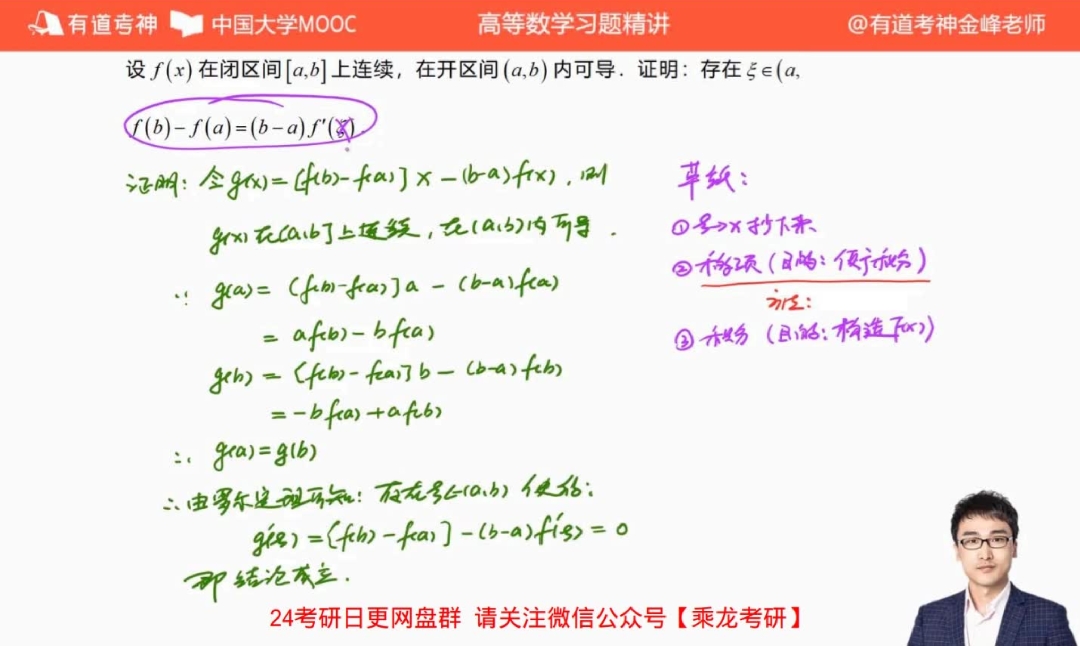 有道考神 中国大学MOOC 高等数学习题精讲 @有道考神金峰老师
设 f(x) 在闭区间[a,b]上连续，在开区间(a,b)内可导．证明：存在 ξ∈(a,
f(b)−f(a)=(b−a)f′(
证明：令g(x)=[f(b)-f(a)]x-(b-a)f(x)，则
g(x)在[a,b]上连续，在(a,b)内可导．
∵ g(a)= [f(b)-f(a)]a-(b-a)f(a)
= af(b)-bf(a)
g(b)= [f(b)-f(a)]b-(b-a)f(b)
=-bf(a)+af(b)
∴ g(a)=g(b)
∴由罗尔定理可知：存在ξ∈(a,b) 使得：
g′(ξ)=[f(b)-f(a)]-(b-a)f′(ξ)=0
即结论成立．
草纸：
①ξ→x抄下来
②移项（目的：便于积分）
方法：
③积分（目的：构造F(x)）
24考研日更网盘群 请关注微信公众号【乘龙考研】